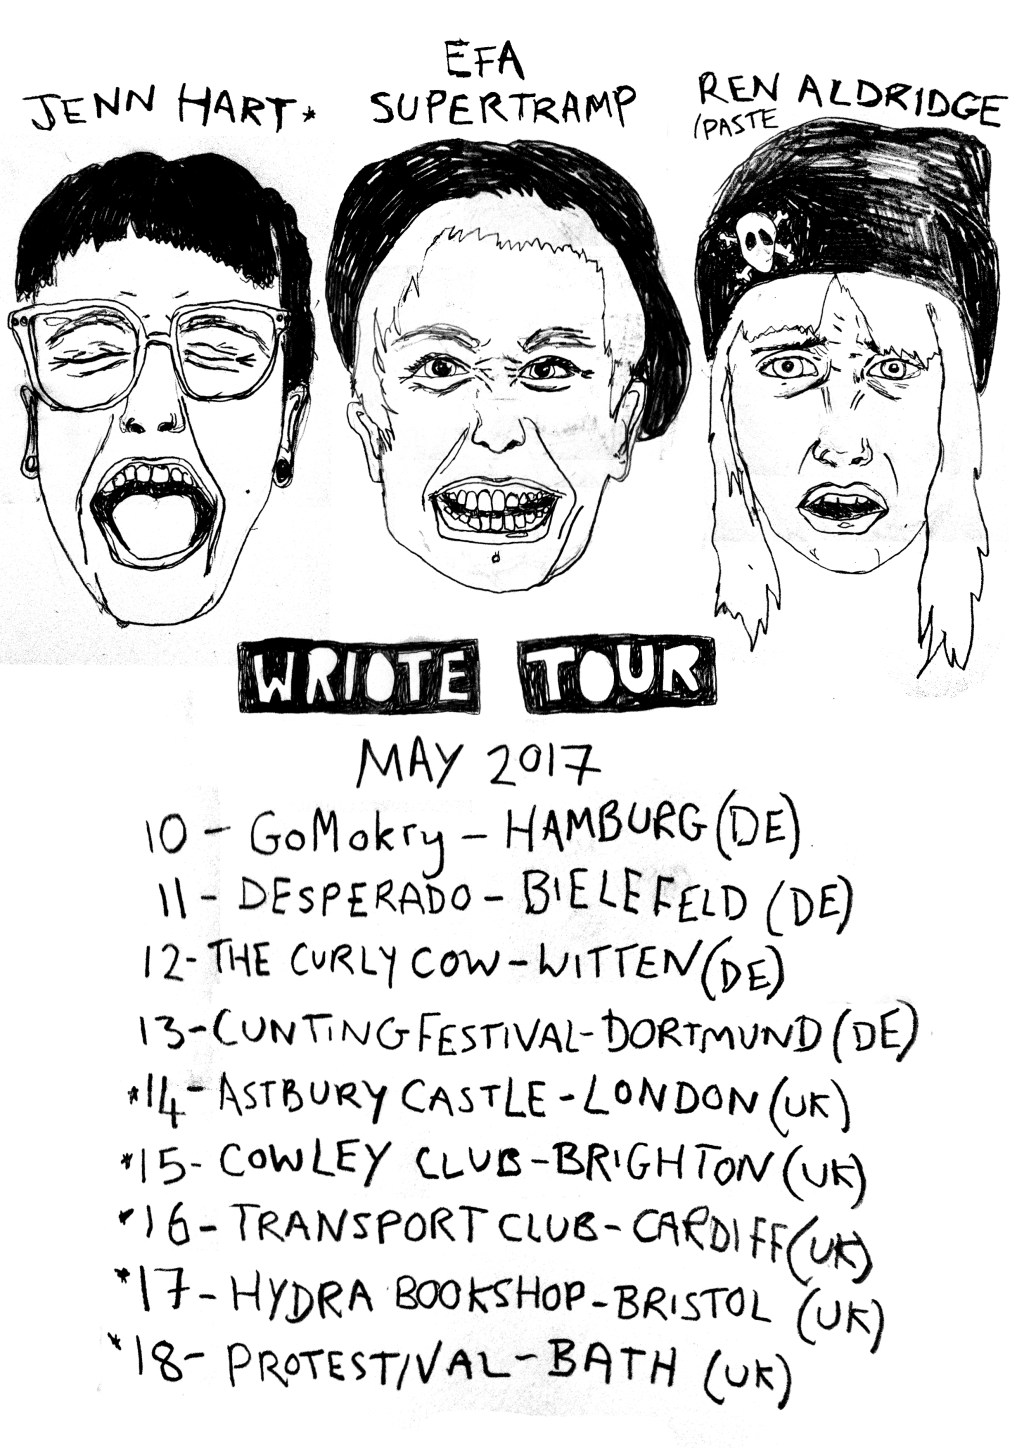 EFA
JENN HART*
SUPERTRAMP
REN ALDRIDGE
/PASTE
WRIOTE TOUR
MAY 2017
10 - GoMokry - HAMBURG (DE)
11 - DESPERADO - BIELEFELD (DE)
12 - THE CURLY COW - WITTEN (DE)
13 - CUNTING FESTIVAL - DORTMUND (DE)
*14 - ASTBURY CASTLE - LONDON (UK)
*15 - COWLEY CLUB - BRIGHTON (UK)
*16 - TRANSPORT CLUB - CARDIFF (UK)
*17 - HYDRA BOOKSHOP - BRISTOL (UK)
*18 - PROTESTIVAL - BATH (UK)